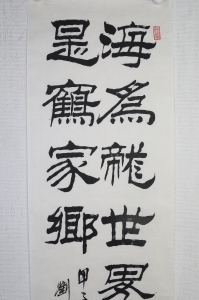 海為龍世界
是鶴家鄉
甲
劉